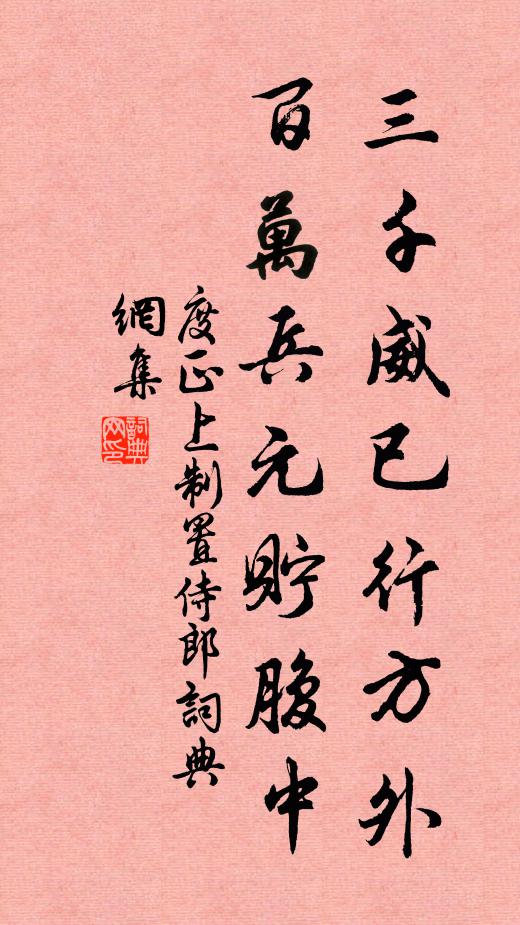 三千威已行方外
百萬兵元貯腹中
度正上制置侍郎詞典
網集
詞典
网印